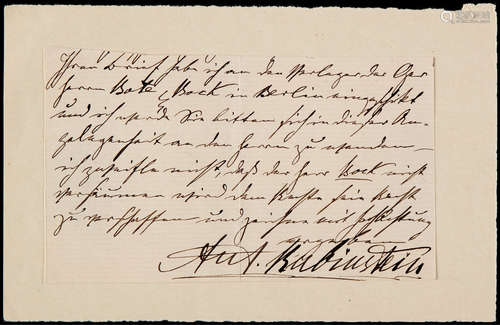 Ihren Brief habe ich an den Verleger der Oper
Herrn Bote & Bock in Berlin eingeschickt
und ich werde Sie bitten sich in dieser An-
gelegenheit an den Herrn zu wenden –
ich zweifle nicht, daß der Herr Bock nicht
versäumen wird dem Rechte sein Recht
zu verschaffen – und zeichne mit Hochachtung
ergeben
Ant. Rubinstein